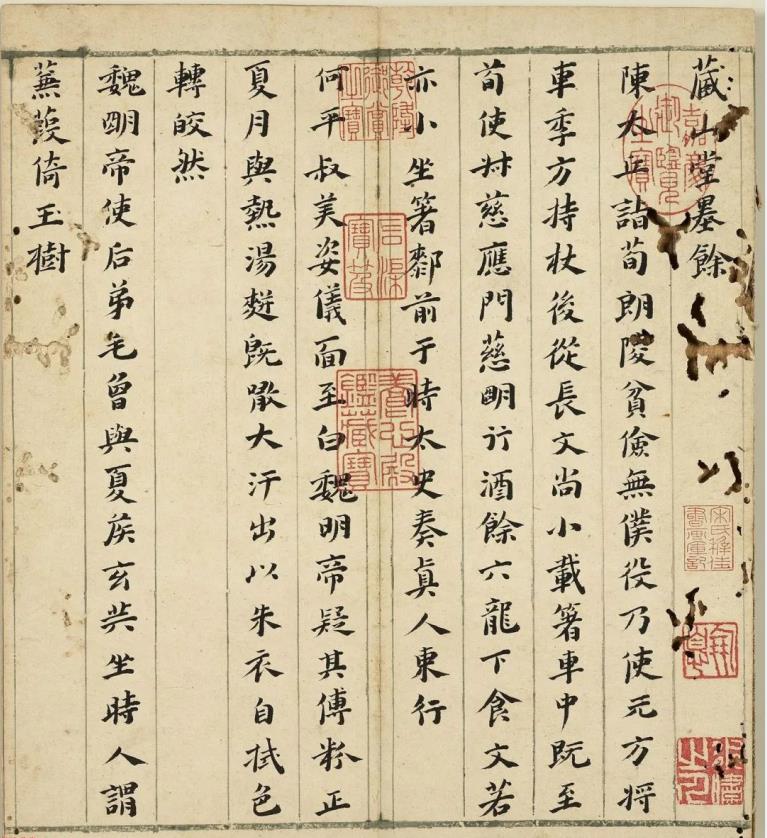 藏山堂墨餘
陳太丘詣荀朗陵貧儉無僕役乃使元方將
車季方持杖後從長文尚小載箸車中既至
荀使叔慈應門慈明行酒餘六龍下食文若
亦小坐箸䣛前于時太史奏真人東行
何平叔美姿儀面至白魏明帝疑其傅粉正
夏月與熱湯䴵既噉大汗出以朱衣自拭色
轉皎然
魏明帝使后弟毛曾與夏侯玄共坐時人謂
蒹葭倚玉樹
嘉慶御覽之寶
石渠寶笈
養心殿鑑藏寶